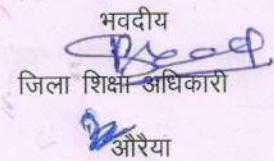 भवदीय
जिला शिक्षा अधिकारी
औरैया